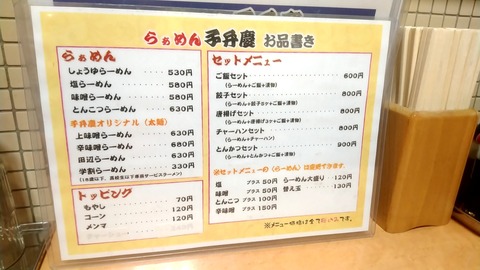 らぁめん 手弁慶 お品書き
らぁめん
しょうゆらーめん ・・・・・ 530円
塩らーめん ・・・・・ 580円
味噌らーめん ・・・・・ 580円
とんこつらーめん ・・・・・ 630円
手弁慶オリジナル(太麺)
上味噌らーめん ・・・・・ 630円
辛味噌らーめん ・・・・・ 680円
田辺らーめん ・・・・・ 630円
学割らーめん ・・・・・ 330円
トッピング
もやし ・・・・・ 70円
コーン ・・・・・ 120円
メンマ ・・・・・ 120円
セットメニュー
ご飯セット ・・・・・ 600円
(らーめん+ご飯+漬物)
餃子セット ・・・・・ 800円
(らーめん+餃子5ケ+ご飯+漬物)
唐揚げセット ・・・・・ 800円
(らーめん+唐揚げ3ケ+ご飯+漬物)
チャーハンセット ・・・・・ 800円
(らーめん+チャーハン)
とんかつセット ・・・・・ 900円
(らーめん+とんかつ+ご飯+漬物)
※セットメニューの(らーめん)は
塩 プラス 50円 らーめん大盛り ・・ 120円
味噌 プラス 50円 替え玉 ・・・・・ 130円
とんこつ プラス 100円
辛味噌 プラス 150円
※メニュー価格は全て税込みです。